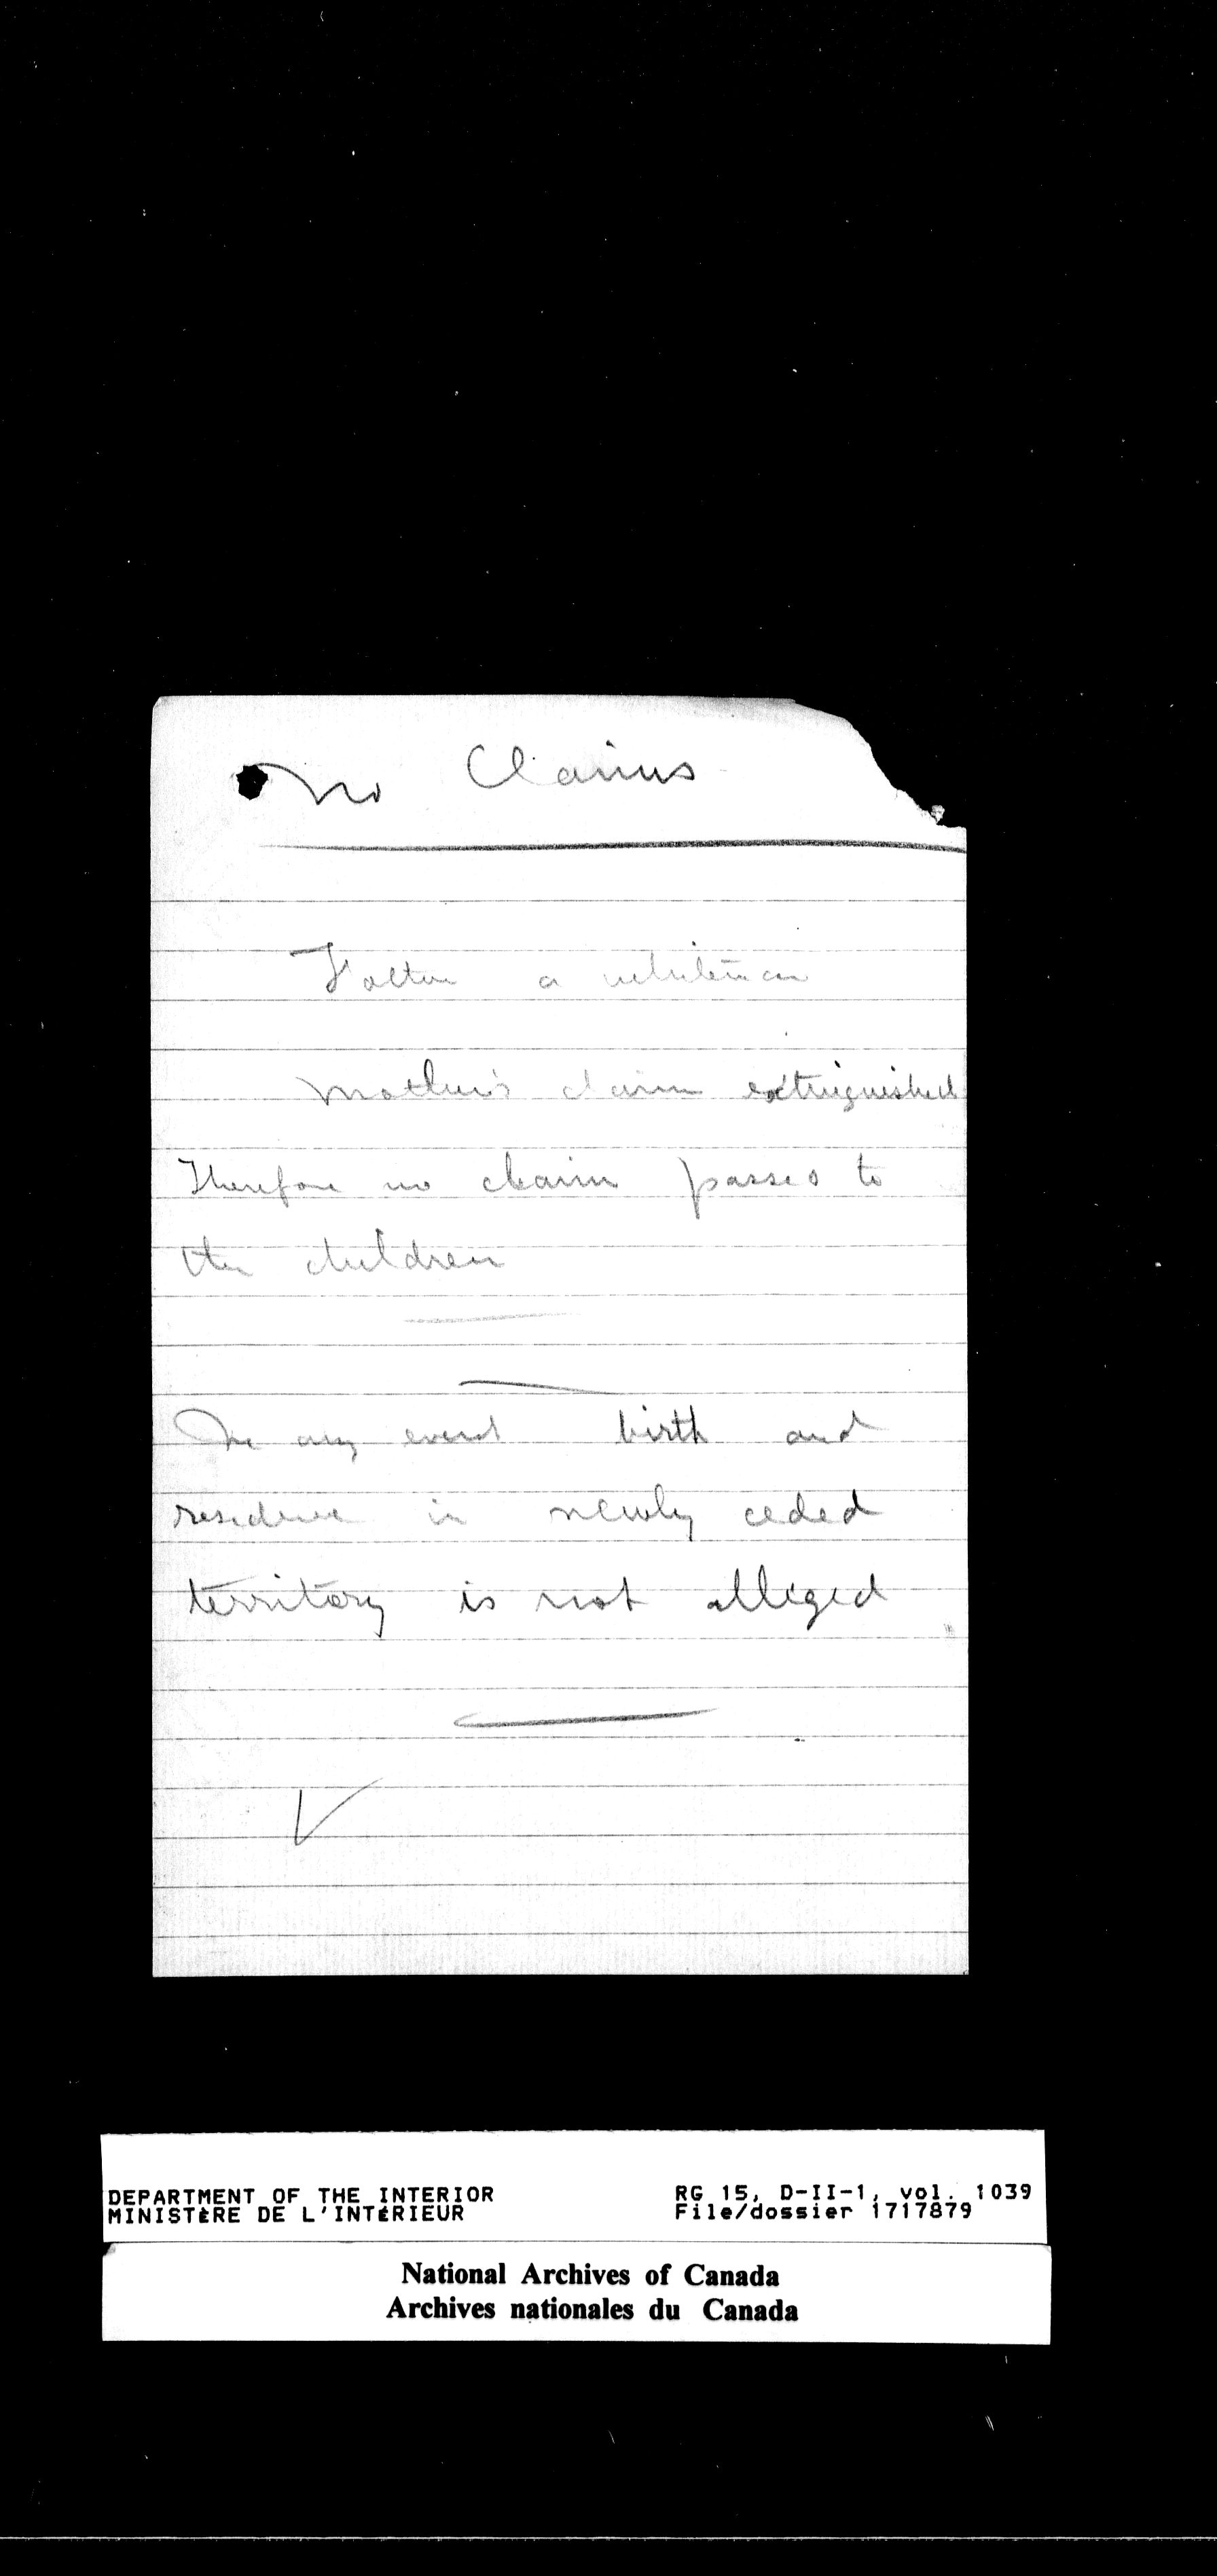 No Claims
Father a whiteman
Mother's claim extinguished
Therefore no claim passes to
the children
In any event birth and
residence in newly ceded
territory is not alleged
DEPARTMENT OF THE INTERIOR
MINISTÈRE DE L'INTÉRIEUR
RG 15, D-II-1, vol. 1039
File/dossier 1717879
National Archives of Canada
Archives nationales du Canada